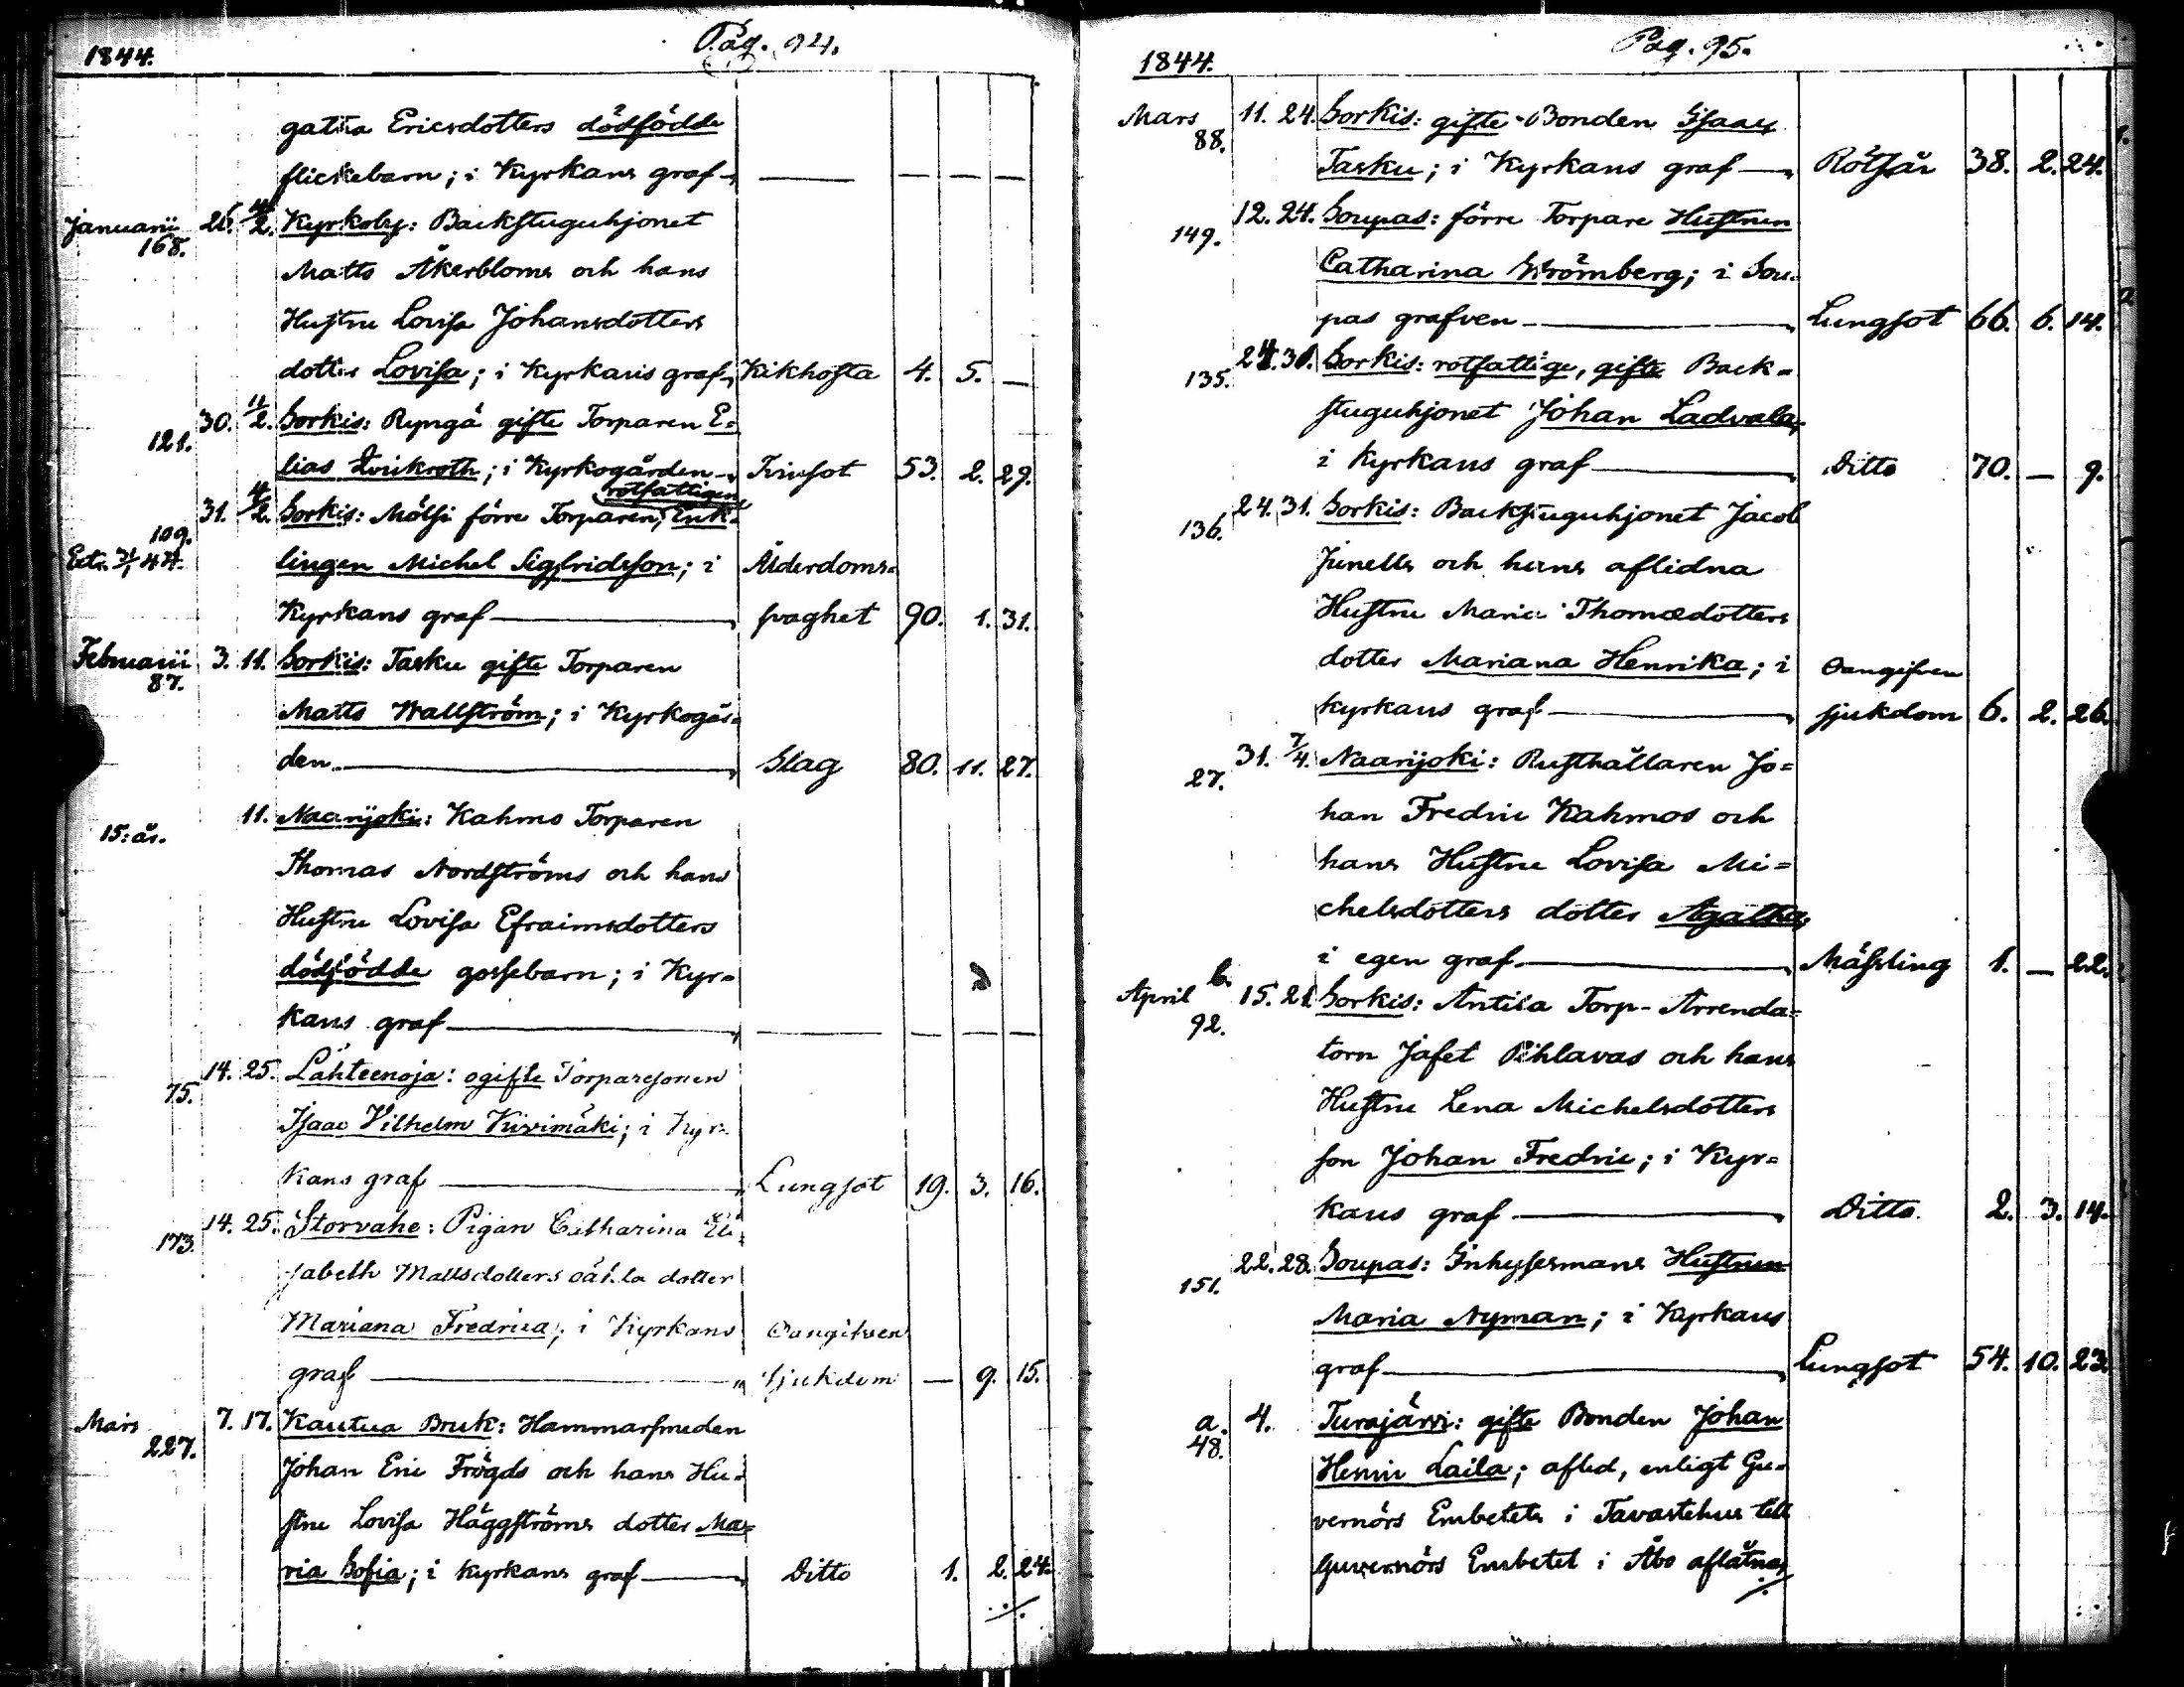 1844.
Pag. 94.
gatha Ericsdotters dödfödde
flickebarn; i Kyrkans graf — — — —
Januarii 168. 26. 4/2. Kyrkoby: Backstuguhjonet
Matts Åkerbloms och hans
Hustru Lovisa Johansdotters
dotter Lovisa; i Kyrkans graf, Kikhosta 4. 5. —
121. 30. 11/2. Sorkis: Ryngä gifte Torparen E=
lias Qvikroth; i Kyrkogården — Tvinsot 53. 2. 29.
rotfattigen
109. 31. 4/2. Sorkis: Mölsi förre Torparen, Enk=
Extr. 31/1 44. lingen Michel Sigfridsson; i Ålderdoms=
Kyrkans graf — svaghet 90. 1. 31.
Februarii 87. 3. 11. Sorkis: Tasku gifte Torparen
Matts Wallström; i Kyrkogår=
den — Slag 80. 11. 27.
15: år. 11. Naarijoki: Kahmo Torparen
Thomas Nordströms och hans
Hustru Lovisa Efraimsdotters
dödfödde gossebarn; i Kyr=
kans graf — — — —
75. 14. 25. Lähteenoja: ogifte Torparesonen
Isaac Vilhelm Kivimäki; i Kyr=
kans graf — Lungsot 19. 3. 16.
173. 14. 25. Storvahe: Pigan Catharina Eli
sabeth Mattsdotters oäkta dotter
Mariana Fredrica; i Kyrkans Oangifven
graf — sjukdom — 9. 15.
Mars 227. 7. 17. Kautua Bruk: Hammarsmeden
Johan Eric Frögds och hans Hu=
stru Lovisa Häggströms dotter Ma=
ria Sofia; i kyrkans graf — Ditto 1. 2. 24.
./.
1844.
Pag. 95.
Mars 88. 11. 24. Sorkis: gifte Bonden Isaac
Tasku; i Kyrkans graf — Rötsår 38. 2. 24.
149. 12. 24. Soupas: förre Torpare Hustrun
Catharina Strömberg; i Sou=
pas grafven — Lungsot 66. 6. 14.
135. 24. 31. Sorkis: rotfattige, gifte Back=
stuguhjonet Johan Ladvala,
i Kyrkans graf — Ditto 70. — 9.
136. 24. 31. Sorkis: Backstuguhjonet Jacob
Junells och hans aflidna
Hustru Maria Thomædotters
dotter Mariana Henrika; i Oangifven
kyrkans graf — sjukdom 6. 2. 26.
27. 31. 7/4. Naarijoki: Rusthållaren Jo=
han Fredric Kahmos och
hans Hustru Lovisa Mi=
chelsdotters dotter Agatha,
i egen graf — Mässling 1. — 22.
April b. 92. 15. 21. Sorkis: Antila Torp-Arrenda=
torn Jafet Pihlavas och hans
Hustru Lena Michelsdotters
son Johan Fredric; i Kyr=
kans graf — Ditto 2. 3. 14.
151. 22. 28. Soupas: Inhysesmans Hustrun
Maria Nyman; i Kyrkans
graf — Lungsot 54. 10. 23.
a. 48. 4. Turajärvi: gifte Bonden Johan
Henric Laila; afled, enligt Gu=
vernörs Embetets i Tavastehus till
Guvernörs Embetet i Åbo aflåtna,
./.